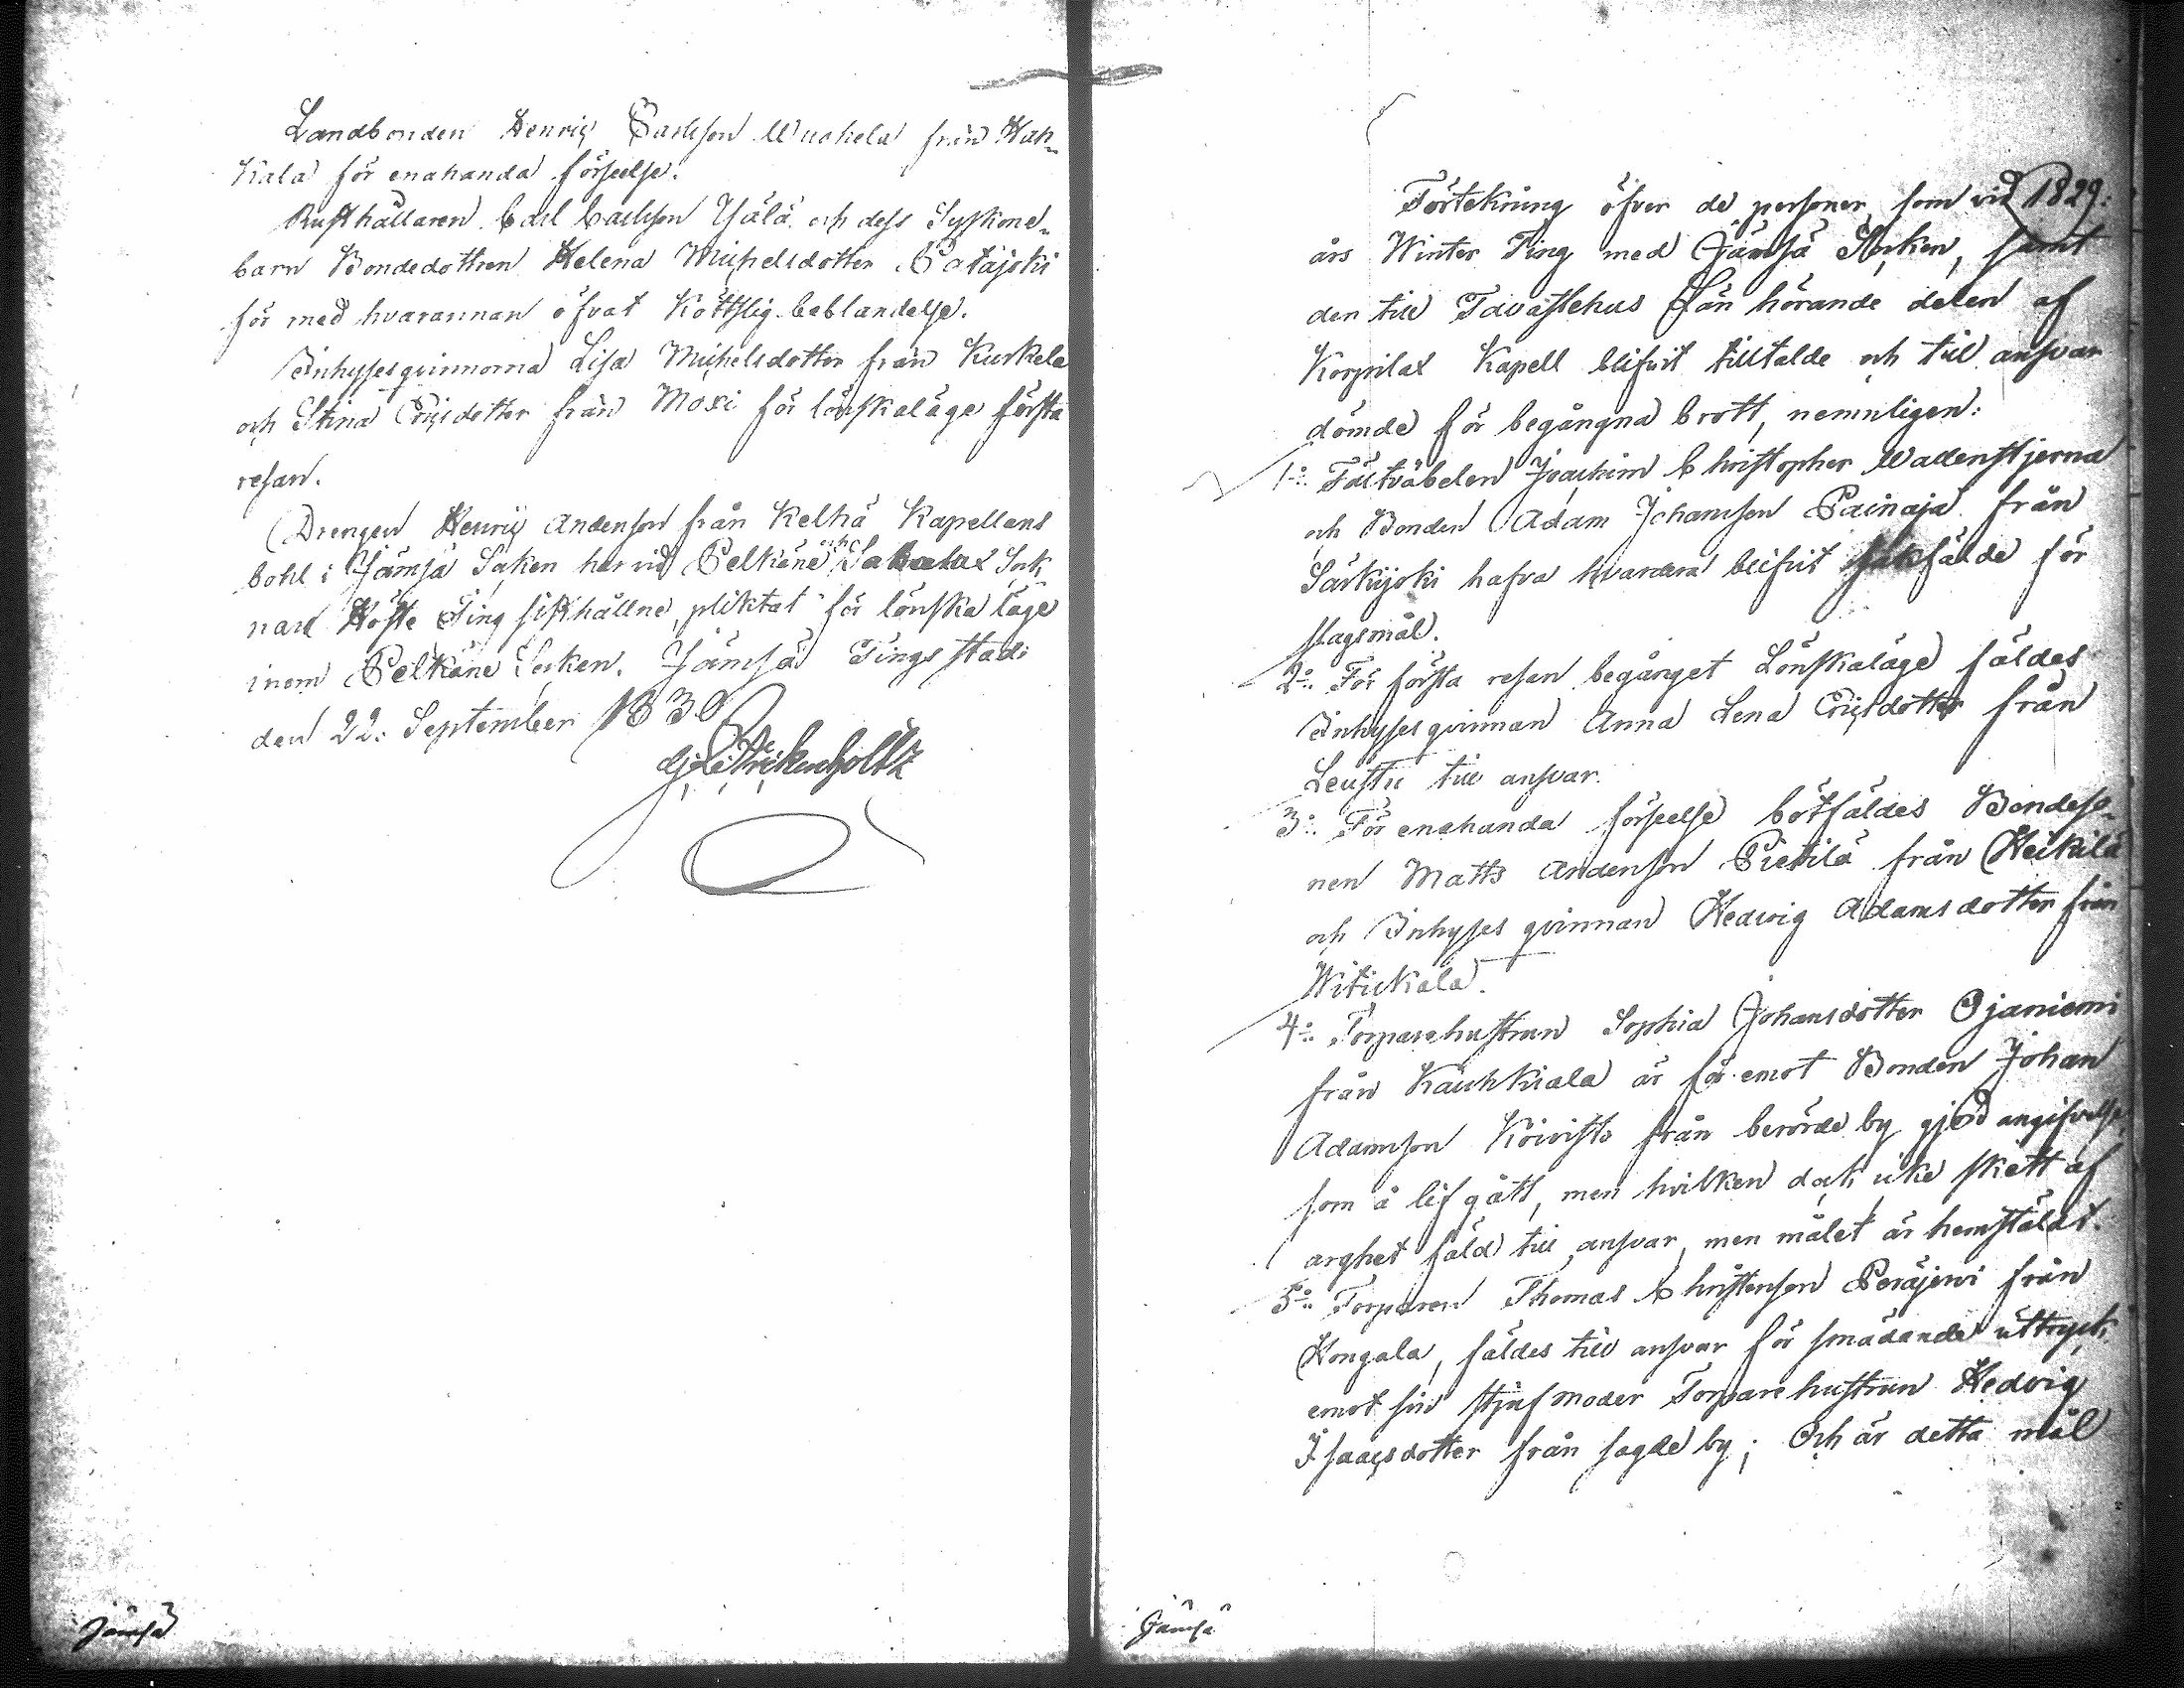 Landbonden Henric Carlsson Wuokela från Hak-
kala för enahanda förseelse.
Rusthållaren Carl Carlsson Ylälä och dess Syskone-
barn Bondedottren Helena Michelsdotter Patajoki
för med hvarannan öfvat Köttslig beblandelse.
Inhysesqvinnorna Lisa Michelsdotter från Kuskela
och Stina Ericsdotter från Moxi för lönskaläge första
resan.
Drengen Henric Andersson från Kelhä Kapellans
bohl i Jämsä Socken har vid Pelkäne och Sahalax Sock
nars Höste Ting sisthållne, pliktat för lönska läge
inom Pelkäne Socken. Jämsä Tingsstad
den 22: September 1830
Jämsä
Förtekning öfver de personer som vid 1829:
års Winter Ting med Jämsä Socken, samt
den till Tavastehus Län hörande delen af
Korpilax Kapell blifvit tilltalde och till ansvar
dömde för begångna brott, nemnligen:
1:o Fältväbelen Joachim Christopher Wadenstjerna
och Bonden Adam Johansson Painaja från
Särkijoki hafva hvardera blifvit sakfälde för
slagsmål.
2:o För första resan begånget Lönskaläge fäldes
Inhysesqvinnan Anna Lena Ericsdotter från
Leustu till ansvar.
3:o För enahanda förseelse bötfäldes Bondeso-
nen Matts Andersson Pietilä från Heikilä
och Inhyses qvinnan Hedvig Adamsdotter från
Witickala.
4:o Torparehustrun Sophia Johansdotter Ojaniemi
från är för emot Bonden Johan
Adamsson Koivisto från berörde by gjord angifvelse
som å lif gått, men hvilken dock icke skett af
arghet fäld till ansvar, men målet är hemstäldt.
5:o Torparen Thomas Christersson Peräjervi från
Hongala, fäldes till ansvar för smädande uttryck
emot sin stjufmoder Torparehustrun Hedvig
Isaacsdotter från sagde by; Och är detta mål
Jämsä